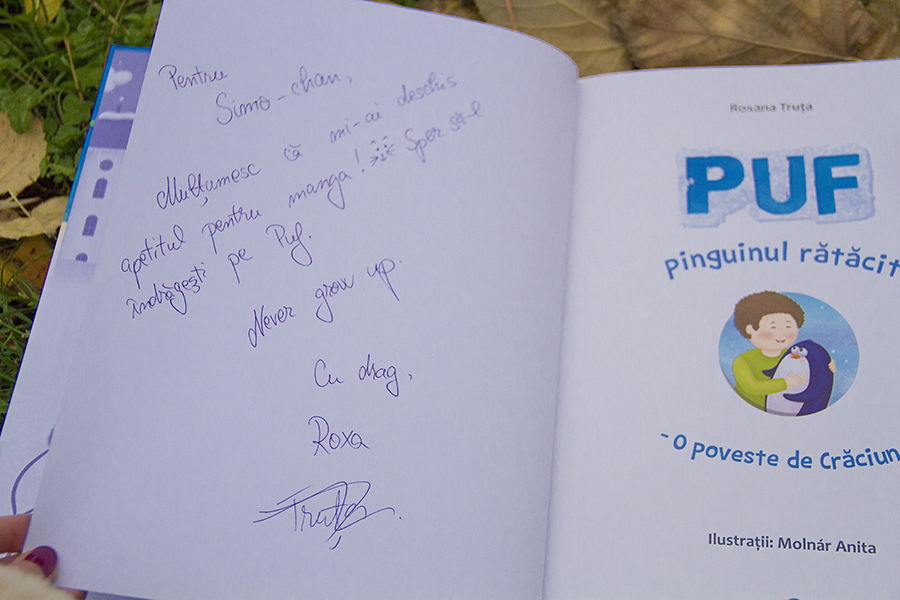 Pentru
Simo-chan,
Mulțumesc că mi-ai deschis
apetitul pentru manga! Sper să-l
îndrăgești pe Puf.
Never grow up.
Cu drag,
Roxa
Truța
Roxana Truța
PUF
pinguinul rătăcit
- O poveste de Crăciun
Ilustrații: Molnár Anita